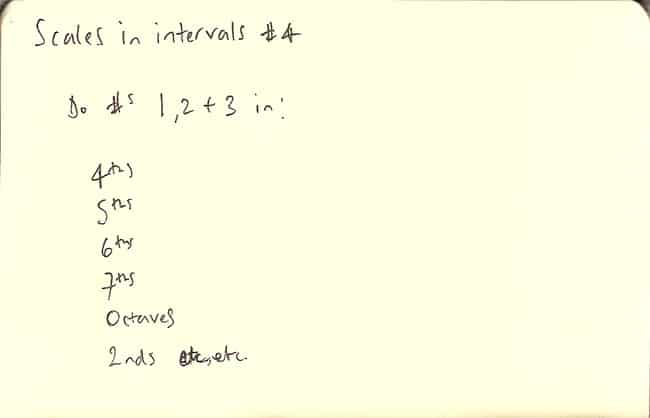 Scales in intervals #4
Do #s 1,2 + 3 in:
4ths
5ths
6ths
7ths
Octaves
2nds etc, etc.